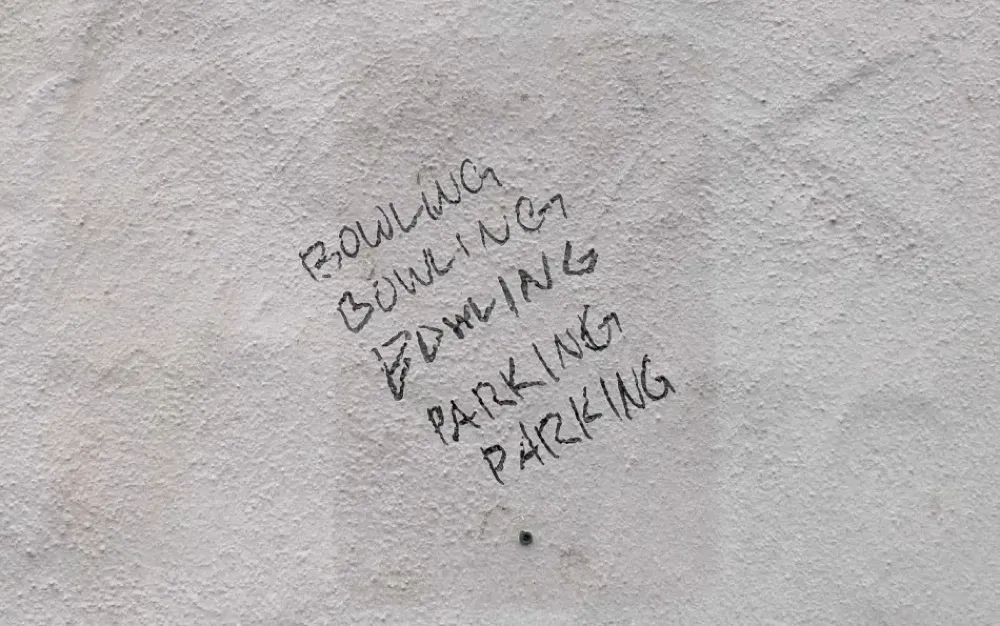 BOWLING
BOWLING
BOWLING
PARKING
PARKING